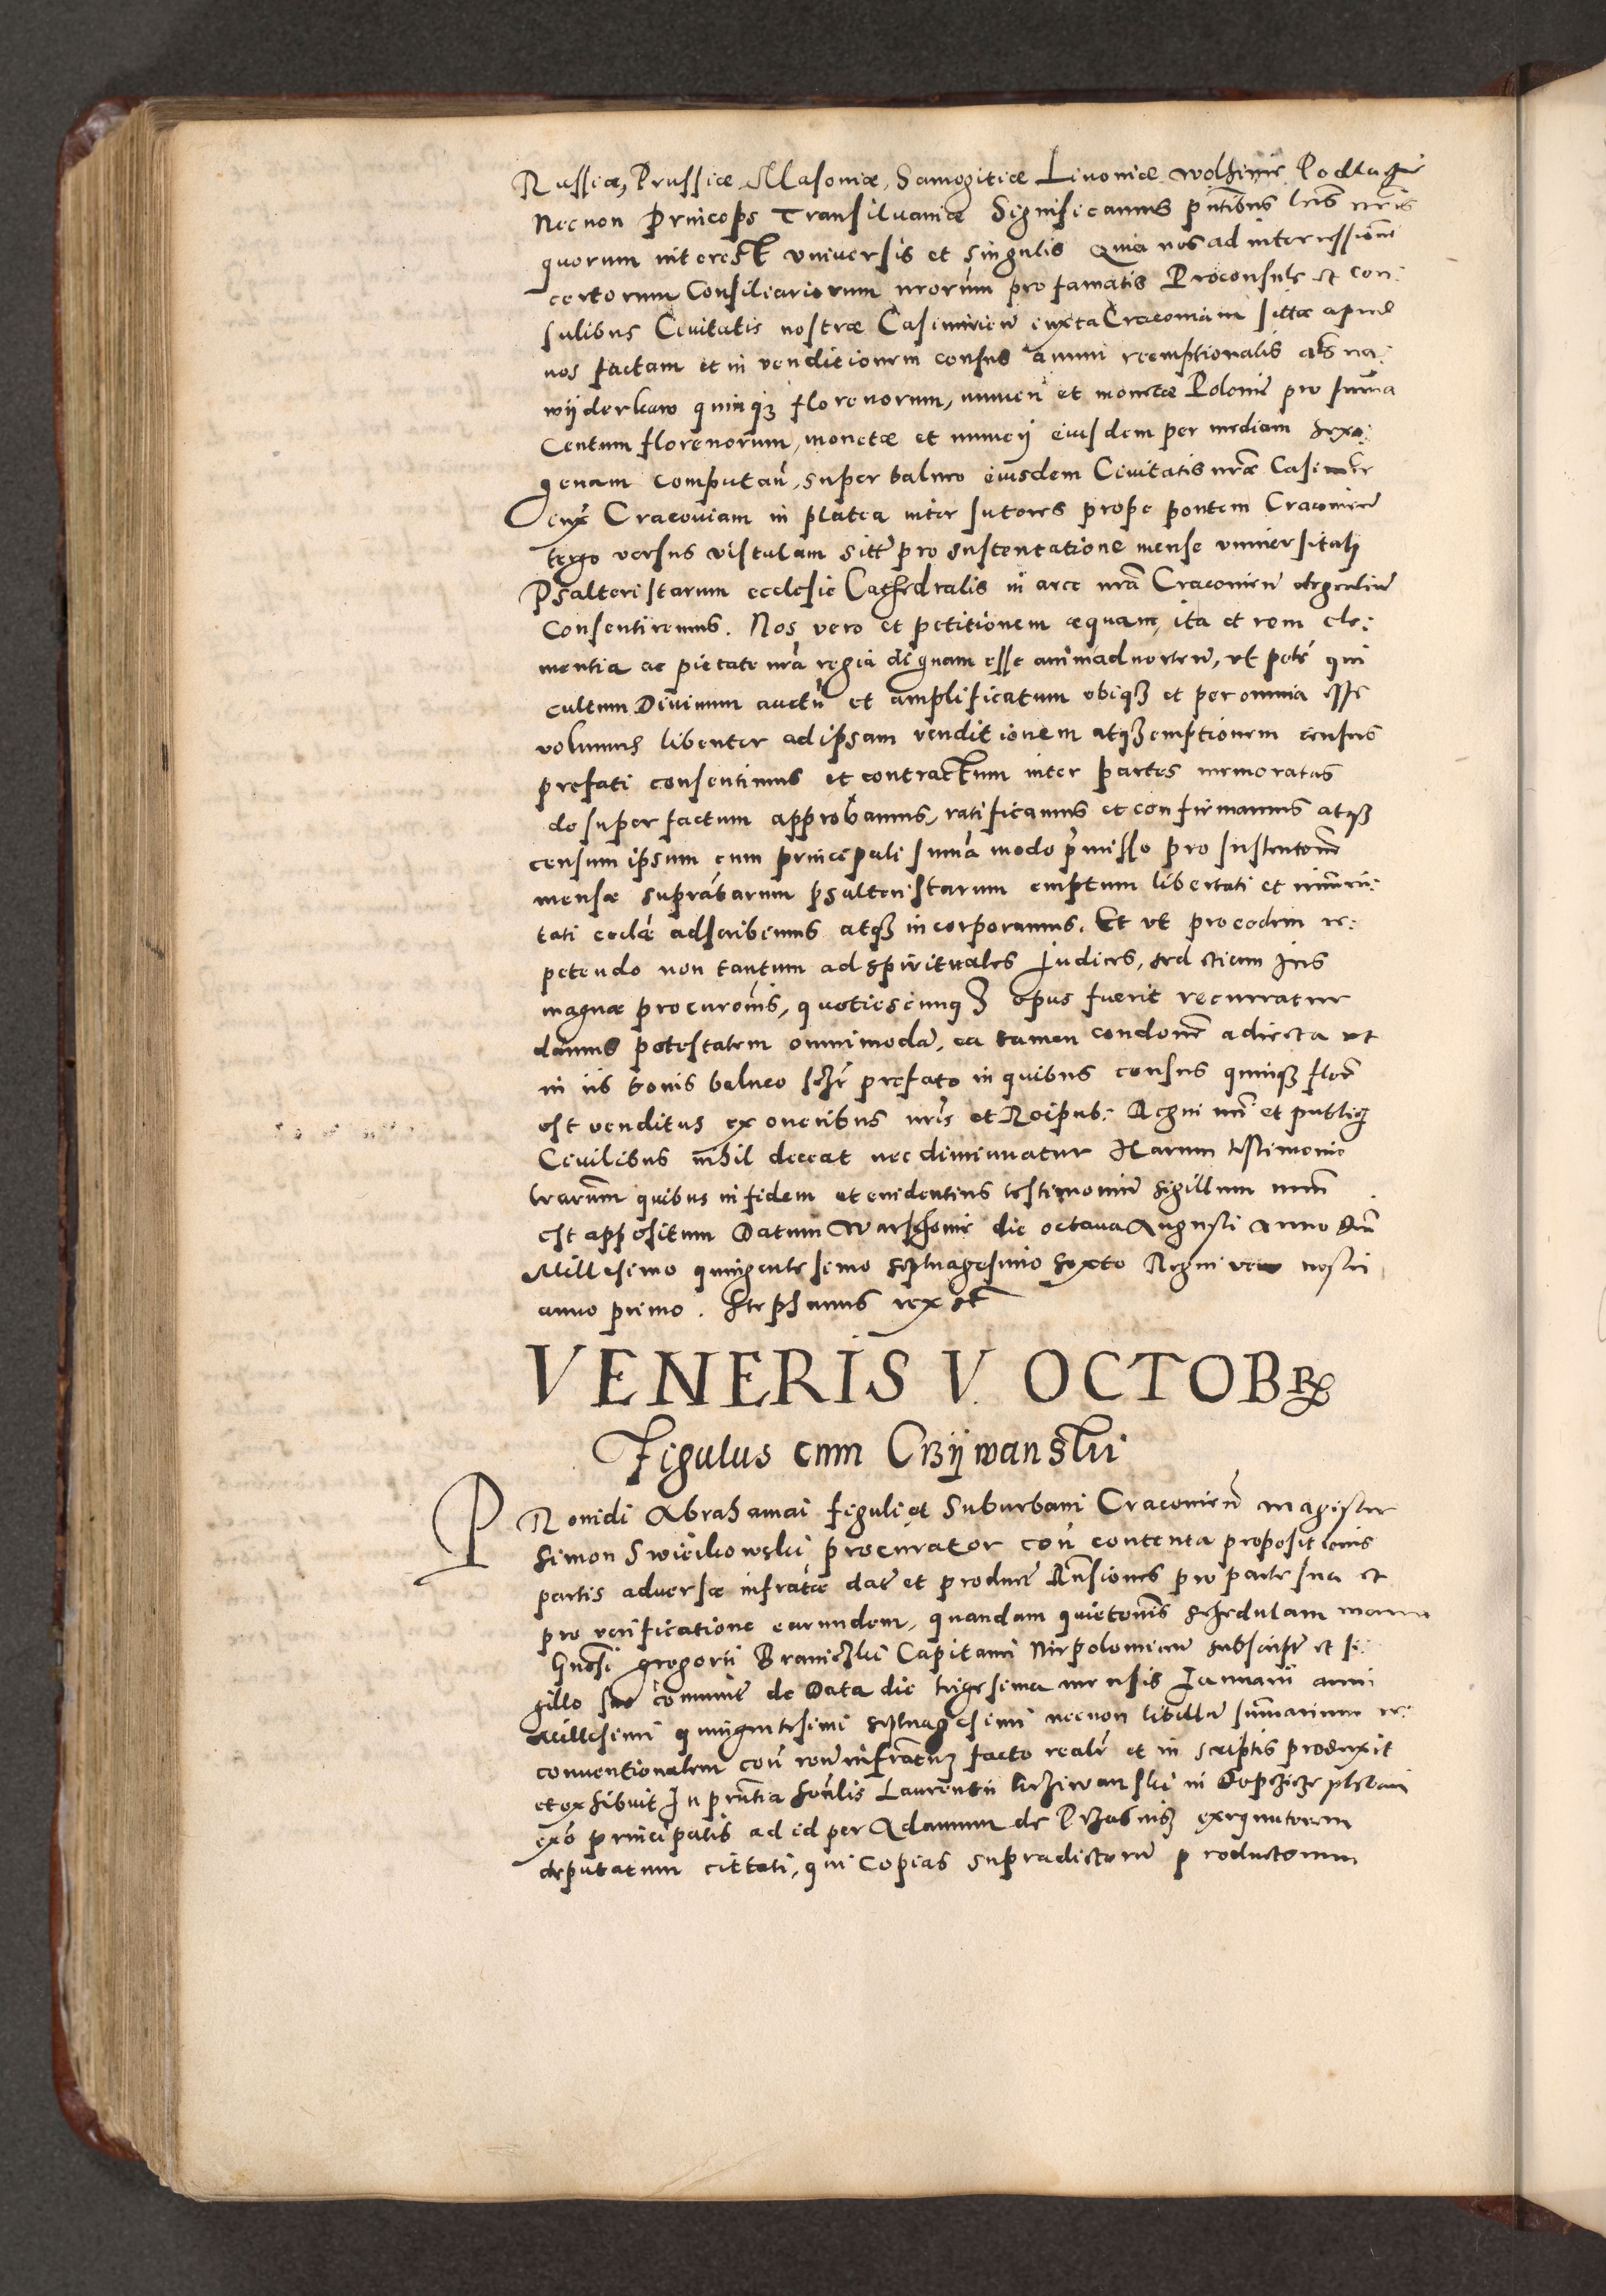 Russiæ, Prussiæ Masoviæ, Samogitiæ Livoniæ Wolhinie Podlagie
Necnon Princeps Transilvaniæ Significamus pntibus lris nris
quorum interest universis et singulis Quia nos ad intercessionem
certorum Consiliariorum nrorum pro famatis Proconsule et con:
sulibus Civitatis nostræ Casimirien iuxta Cracoviam sittæ apud
nos factam et in venditionem census annui reemptionalis als na:
wijderkaw quinqz florenorum, numeri et monetæ Polonie pro suma
Centum florenorum, monetæ et numeri eiusdem per mediam sexa:
genam computan, super balneo eiusdem Civitatis nræ Casimir
iux Cracoviam in platea inter sutores prope pontem Cracovien
tergo versus vistulam sitt pro sustentatione mense universitatis
Psalteristarum ecclesie Cathedralis in arce nra Cracovien degentium
Consentiremus. Nos vero et petitionem æquam, ita et rem cle:
mentia ac pietate nra regia dignam esse animadverten, ut pote qui
cultum Divinum auctu et amplificatum ubiqz et per omnia esse
volumus libenter ad ipsam venditionem atqz emptionem census
prefati consentimus et contractum inter partes memoratas
de super factum approbamus, ratificamus et confirmamus atqz
censum ipsum cum principali suma modo pmisso pro sustentone
mensæ supratarum psalteristarum emptum libertati et immuni:
tati ecclæ adscribimus atqz incorporamus. Et ut pro eodem re:
petendo non tantum ad spirituales Iudices, sed etiam
magnæ procuronis, quotiescunqz opus fuerit recurratur
damus potestatem omnimodam, ea tamen condone adiecta ut
in iis bonis balneo prefato in quibus census quinqz flor
est venditus ex oneribus nris et Reipub: Regni nri et publicis
Civilibus nihil decedat nec diminuatur Harum testimonio
lrarum quibus in fidem et evidentius testimonium sigillum nrum
est appositum Datum Warschovie die octava Augusti Anno Dni
Millesimo quingentesimo septuagesimo sexto Regni vero nostri
anno primo. Stephanus rex sst
VENERIS V. OCTOBRIS
Figulus cum Crzijwanski
PRovidi Abrahamai figuli et Suburbani Cracovien magister
Simon Swieikowski procurator con contenta propositionis
partis adversæ infratæ date et producte Rnsiones pro parte sua et
pro verificatione earundem, quandam quietonis schedulam manu
Gnosi gregorii Braniczki Capitanei Niepolomicen subscript et si:
gillo suo comunit de Data die trigesima mensis Ianuarii anni
Millesimi quingentesimi septuagesimi necnon libellum sumarium re:
conventionalem con facto reali et in scriptis produxit
et exhibuit In pntia honlis Laurentii krziwanski in Dopczicze plebani
exo principalis ad id per Adamum de Przasnisz exequutorem
deputatum cittati, qui Copias supradictorum productorum